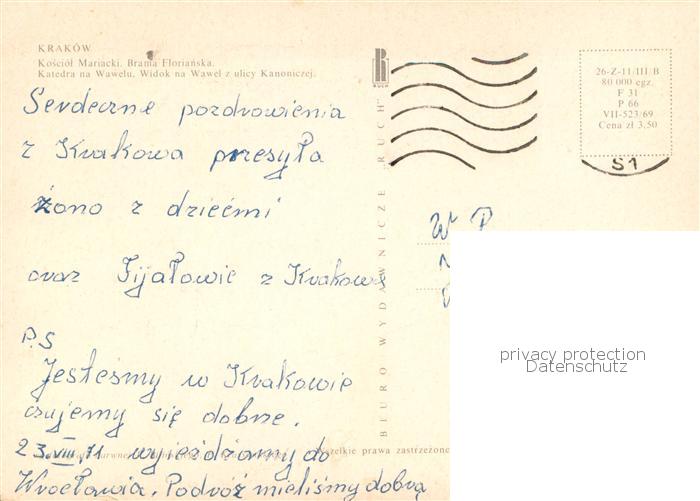 KRAKÓW
Kościół Mariacki. Brama Floriańska.
Katedra na Wawelu. Widok na Wawel z ulicy Kanoniczej.
Serdeczne pozdrowienia
z Krakowa przesyła
żono z dziećmi
oraz Fijałowie z Krakowa
P.S
Jesteśmy w Krakowie
czujemy się dobrze.
23.VIII.71 wyjeżdżamy do
Wrocławia. Podróż mieliśmy dobrą
BIURO WYDAWNICZE „RUCH”
RUCH
26-Z-11/III/B
80 000 egz.
F 31
P 66
VII-523/69
Cena zł 3,50
S1
W P
wszelkie prawa zastrzeżone
privacy protection
Datenschutz